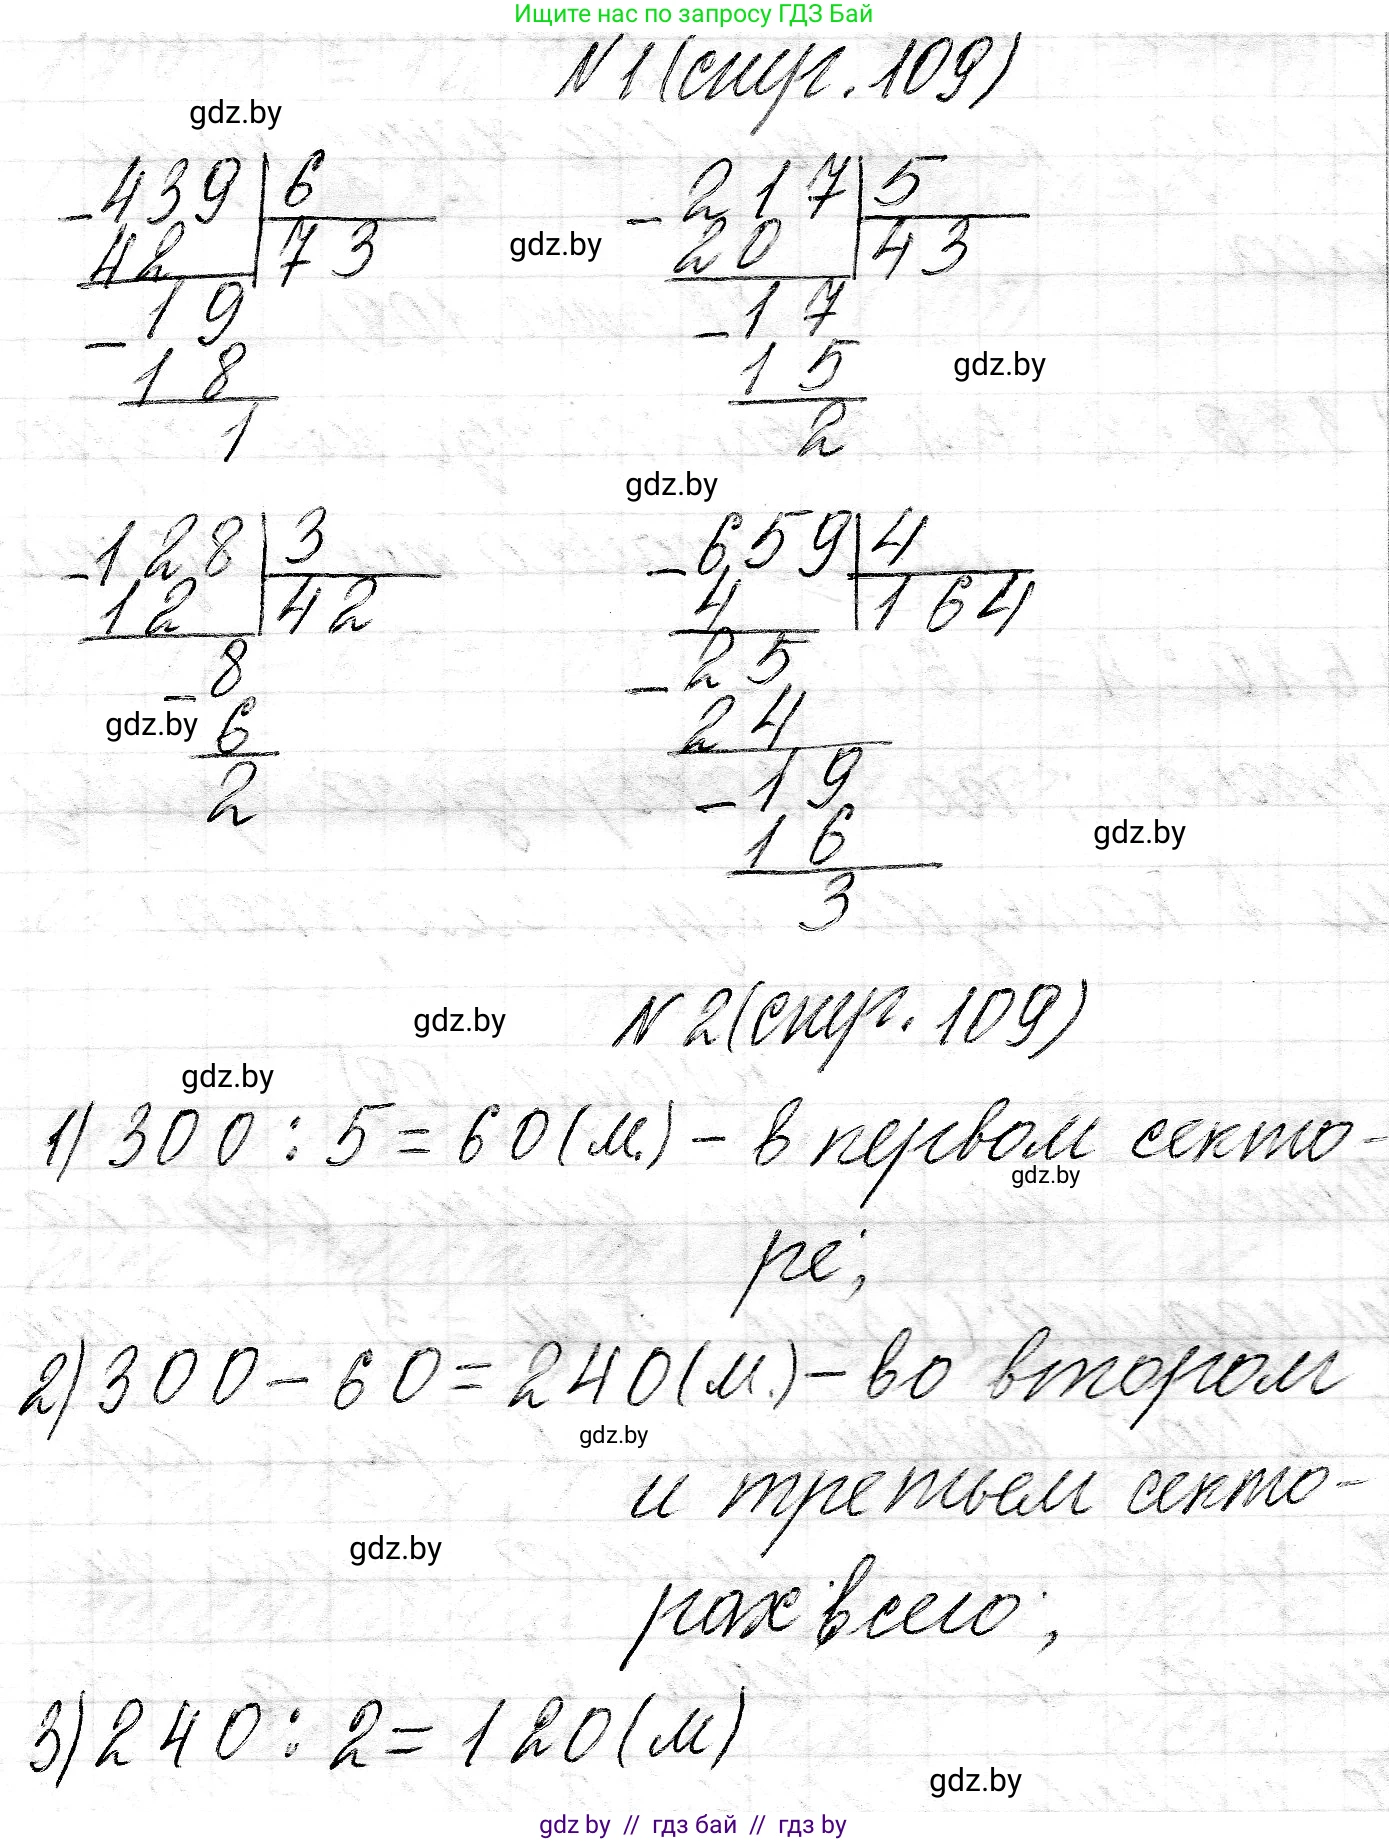 Ищите нас по запросу ГДЗ Бай
N 1 (стр. 109)
gdz.by
-439 | 6
42 | 73
-19
18
1
-217 | 5
20 | 43
gdz.by
-17
15
2
gdz.by
gdz.by
-128 | 3
12 | 42
-8
6
2
gdz.by
-659 | 4
4 | 164
-25
24
-19
16
3
gdz.by
N 2 (стр. 109)
gdz.by
gdz.by
1) 300 : 5 = 60 (м.) – в первом секто-
gdz.by
ре;
2) 300 – 60 = 240 (м.) – во втором
gdz.by
и третьем секто-
gdz.by
рах всего;
3) 240 : 2 = 120 (м)
gdz.by
gdz by // гдз бай // гдз by